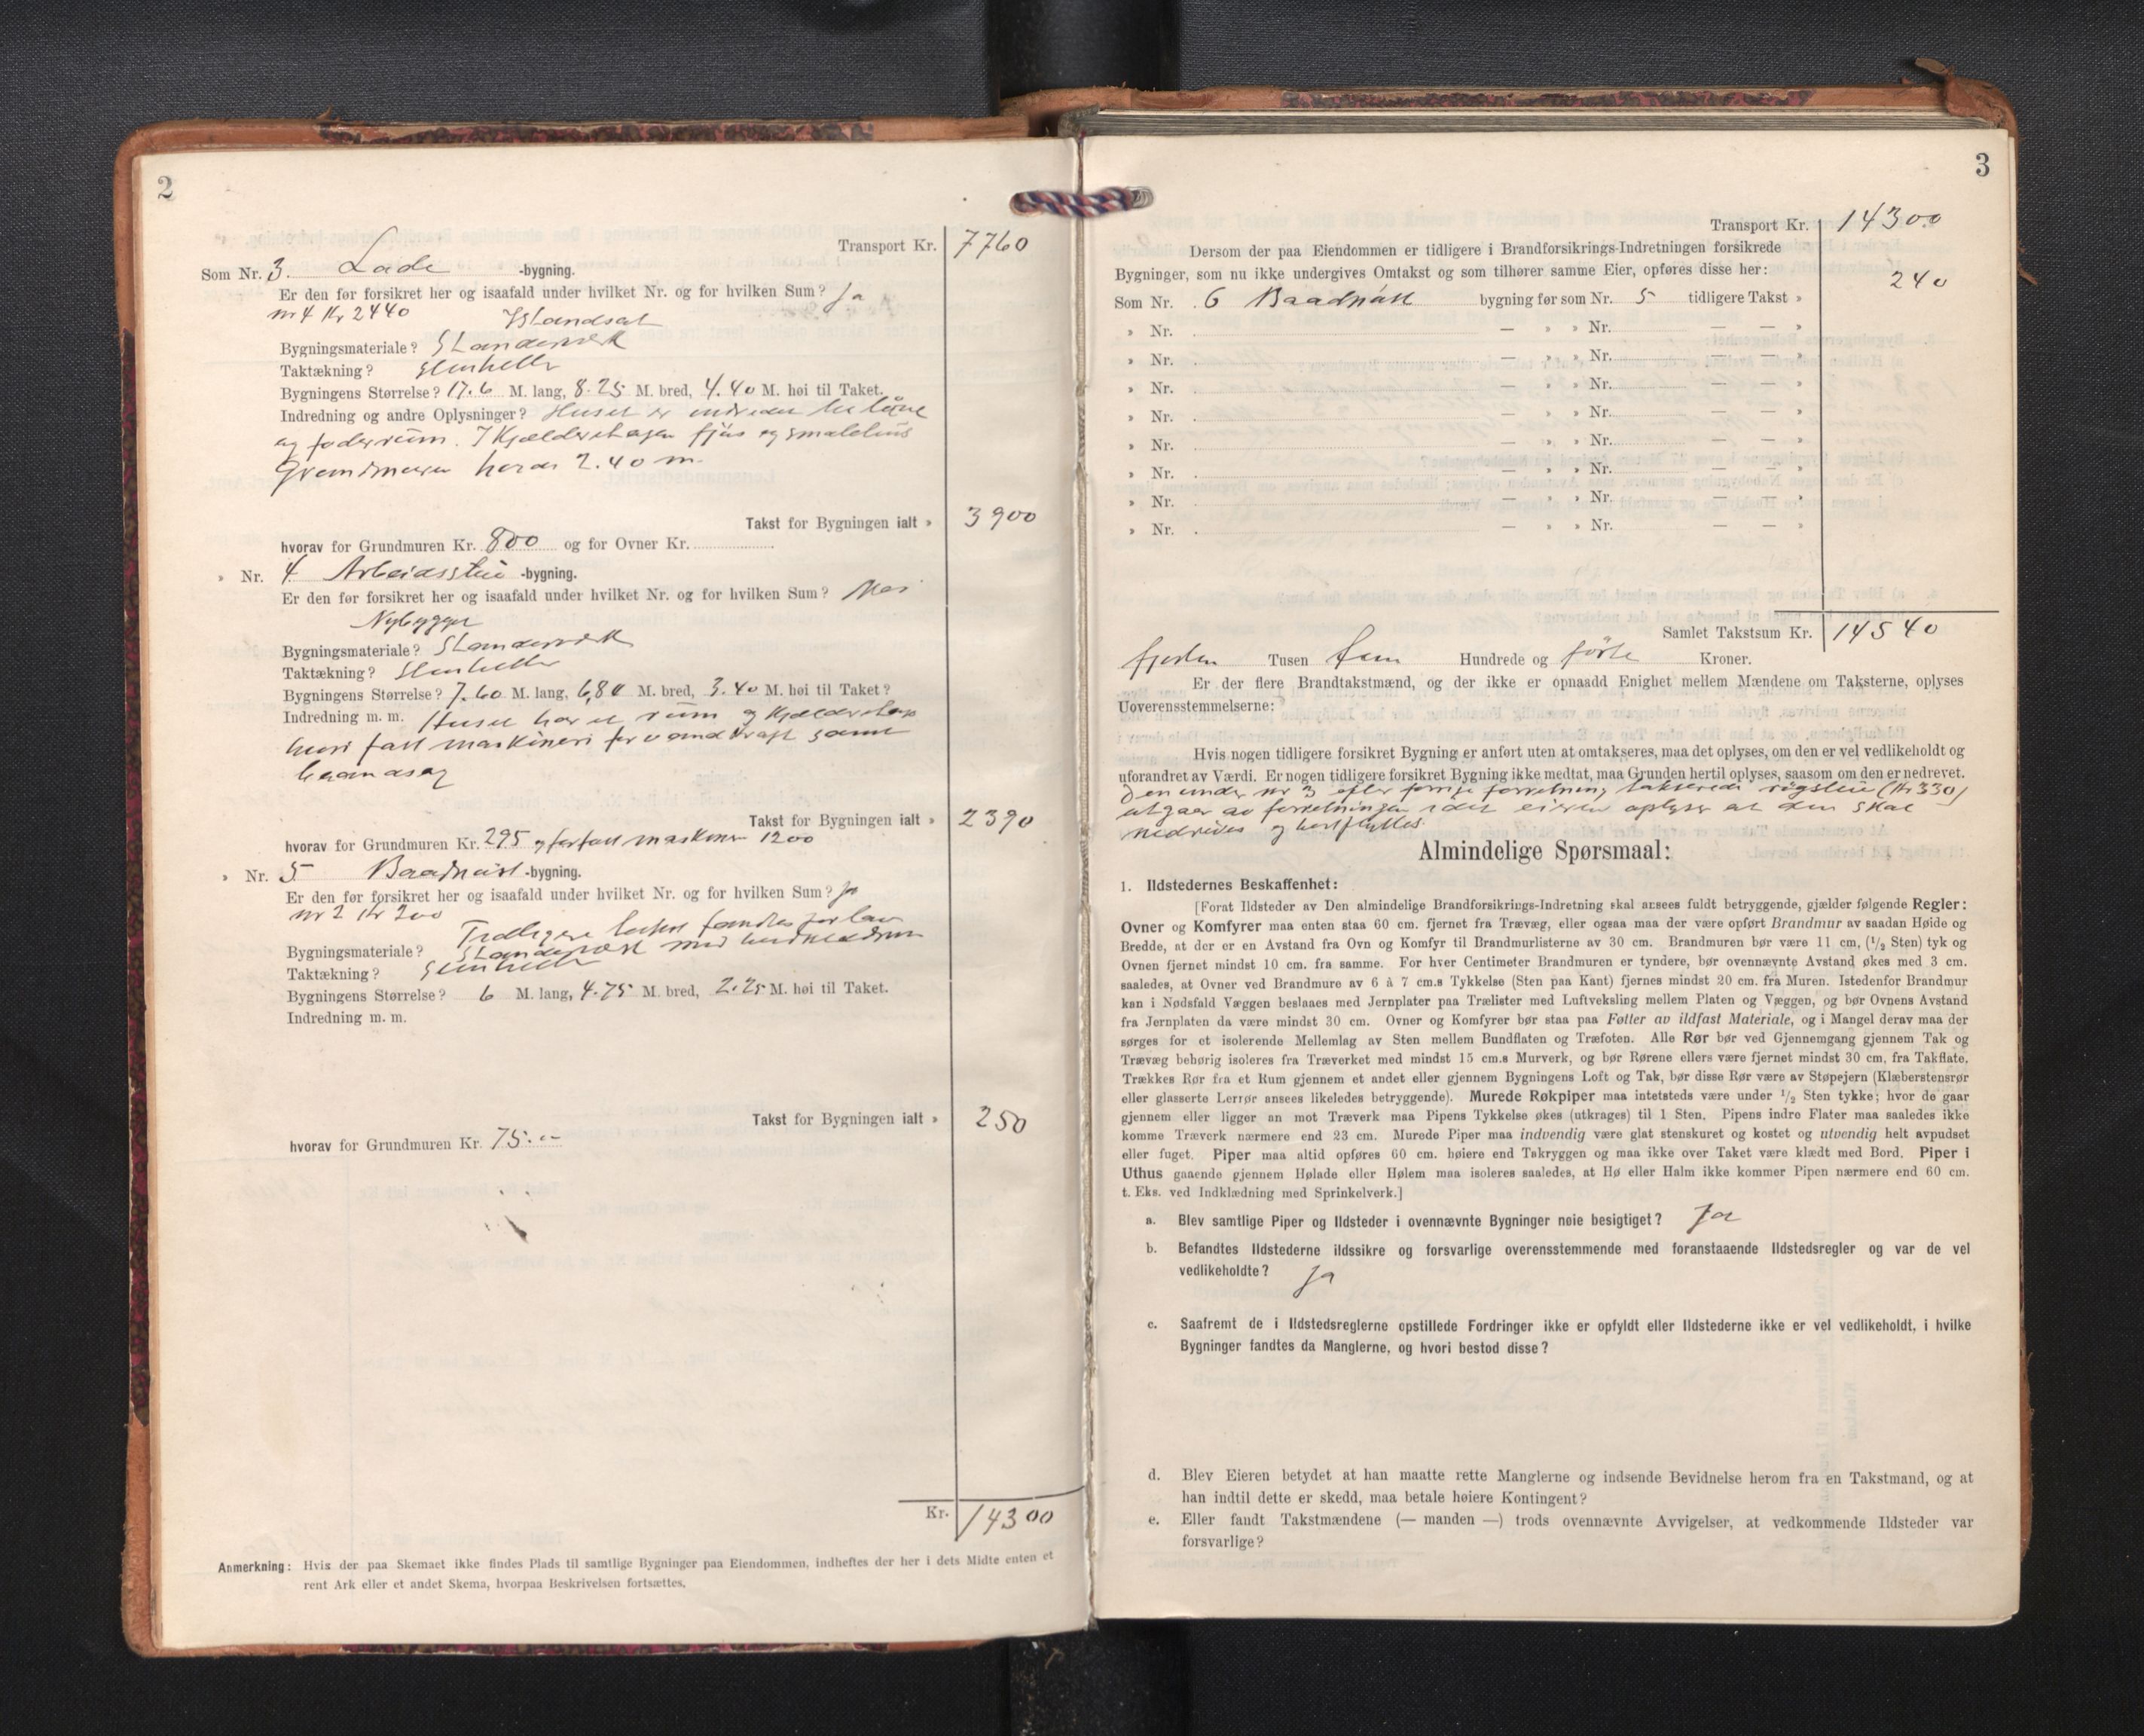 2
Transport Kr. 7760
Som Nr. 3. Lade -bygning.
Er den før forsikret her og isaafald under hvilket Nr. og for hvilken Sum? Ja
nr 4 Kr 2440
Istandsat
Bygningsmateriale? Standerverk
Taktækning? Stenheller
Bygningens Størrelse? 17.6 M. lang, 8.25 M. bred, 4.40 M. høi til Taket.
Indredning og andre Oplysninger? Huset er indredet til løive
og foderrum. I Kjælderetagen fjøs og smalehus
Grundmuren herav 2.40 m.
Takst for Bygningen ialt » 3900
hvorav for Grundmuren Kr. 800 og for Ovner Kr.
» Nr. 4 Arbeidsstue -bygning.
Er den før forsikret her og isaafald under hvilket Nr. og for hvilken Sum? Nei
Nybygget
Bygningsmateriale? Standerverk
Taktækning? Stenheller
Bygningens Størrelse? 7.60 M. lang, 6,80 M. bred, 3.40 M. høi til Taket?
Indredning m. m. Huset har et rum og Kjælderetage
hvori fast maskineri for vandkraft samt
baandsag
Takst for Bygningen ialt » 2390
hvorav for Grundmuren Kr. 295 og for fast maskineri 1200
» Nr. 5 Baadnøst -bygning.
Er den før forsikret her og isaafald under hvilket Nr. og for hvilken Sum? Ja
nr 2 Kr 200
Tidligere takst fandtes for lav
Bygningsmateriale? Standerverk med bordklædning
Taktækning? Stenheller
Bygningens Størrelse? 6 M. lang, 4.75 M. bred, 2.25 M. høi til Taket.
Indredning m. m.
Takst for Bygningen ialt » 250
hvorav for Grundmuren Kr. 75.--
Kr. 14300
Anmerkning: Hvis der paa Skemaet ikke findes Plads til samtlige Bygninger paa Eiendommen, indheftes der her i dets Midte enten et
rent Ark eller et andet Skema, hvorpaa Beskrivelsen fortsættes.
3
Transport Kr. 14300
Dersom der paa Eiendommen er tidligere i Brandforsikrings-Indretningen forsikrede
Bygninger, som nu ikke undergives Omtakst og som tilhører samme Eier, opføres disse her:
Som Nr. 6 Baadnøst bygning før som Nr. 5 tidligere Takst » 240
» Nr. — » » Nr. — — »
» Nr. — » » Nr. — — »
» Nr. — » » Nr. — — »
» Nr. — » » Nr. — — »
» Nr. — » » Nr. — — »
» Nr. — » » Nr. — — »
» Nr. — » » Nr. — — »
» Nr. — » » Nr. — — »
Samlet Takstsum Kr. 14540
fjorten Tusen fem Hundrede og førti Kroner.
Er der flere Brandtakstmænd, og der ikke er opnaadd Enighet mellem Mændene om Taksterne, oplyses
Uoverensstemmelserne:
Hvis nogen tidligere forsikret Bygning er anført uten at omtakseres, maa det oplyses, om den er vel vedlikeholdt og
uforandret av Værdi. Er nogen tidligere forsikret Bygning ikke medtat, maa Grunden hertil oplyses, saasom om den er nedrevet.
Den under nr 3 efter forrige forretning takserede røgstue (Kr 330)
utgaar av forretningen idet eieren oplyser at den skal
nedrives og bortflyttes.
Almindelige Spørsmaal:
1. Ildstedernes Beskaffenhet:
[Forat Ildsteder av Den almindelige Brandforsikrings-Indretning skal ansees fuldt betryggende, gjælder følgende Regler:
Ovner og Komfyrer maa enten staa 60 cm. fjernet fra Trævæg, eller ogsaa maa der være opført Brandmur av saadan Høide og
Bredde, at der er en Avstand fra Ovn og Komfyr til Brandmurlisterne av 30 cm. Brandmuren bør være 11 cm. (1/2 Sten) tyk og
Ovnen fjernet mindst 10 cm. fra samme. For hver Centimeter Brandmuren er tyndere, bør ovennævnte Avstand økes med 3 cm.
saaledes, at Ovner ved Brandmure av 6 à 7 cm.s Tykkelse (Sten paa Kant) fjernes mindst 20 cm. fra Muren. Istedenfor Brandmur
kan i Nødsfald Væggen beslaaes med Jernplater paa Trælister med Luftveksling mellem Platen og Væggen, og bør Ovnens Avstand
fra Jernplaten da være mindst 30 cm. Ovner og Komfyrer bør staa paa Føtter av ildfast Materiale, og i Mangel derav maa der
sørges for et isolerende Mellemlag av Sten mellem Bundflaten og Træfoten. Alle Rør bør ved Gjennemgang gjennem Tak og
Trævæg behørig isoleres fra Træverket med mindst 15 cm.s Murverk, og bør Rørene ellers være fjernet mindst 30 cm. fra Takflate.
Trækkes Rør fra et Rum gjennem et andet eller gjennem Bygningens Loft og Tak, bør disse Rør være av Støpejern (Klæberstensrør
eller glasserte Lerrør ansees likeledes betryggende). Murede Røkpiper maa intetsteds være under 1/2 Sten tykke; hvor de gaar
gjennem eller ligger an mot Træverk maa Pipens Tykkelse økes (utkrages) til 1 Sten. Pipens indre Flater maa saaledes ikke
komme Træverk nærmere end 23 cm. Murede Piper maa indvendig være glat stenskuret og kostet og utvendig helt avpudset
eller fuget. Piper maa altid opføres 60 cm. høiere end Takryggen og maa ikke over Taket være klædt med Bord. Piper i
Uthus gaaende gjennem Hølade eller Hølem maa isoleres saaledes, at Hø eller Halm ikke kommer Pipen nærmere end 60 cm.
t. Eks. ved Indklædning med Sprinkelverk.]
a. Blev samtlige Piper og Ildsteder i ovennævnte Bygninger nøie besigtiget? Ja
b. Befandtes Ildstederne ildssikre og forsvarlige overensstemmende med foranstaaende Ildstedsregler og var de vel
vedlikeholdte? Ja
c. Saafremt de i Ildstedsreglerne opstillede Fordringer ikke er opfyldt eller Ildstederne ikke er vel vedlikeholdt, i hvilke
Bygninger fandtes da Manglerne, og hvori bestod disse?
d. Blev Eieren betydet at han maatte rette Manglerne og indsende Bevidnelse herom fra en Takstmand, og at
han indtil dette er skedd, maa betale høiere Kontingent?
e. Eller fandt Takstmændene (— manden —) trods ovennævnte Avvigelser, at vedkommende Ildsteder var
forsvarlige?